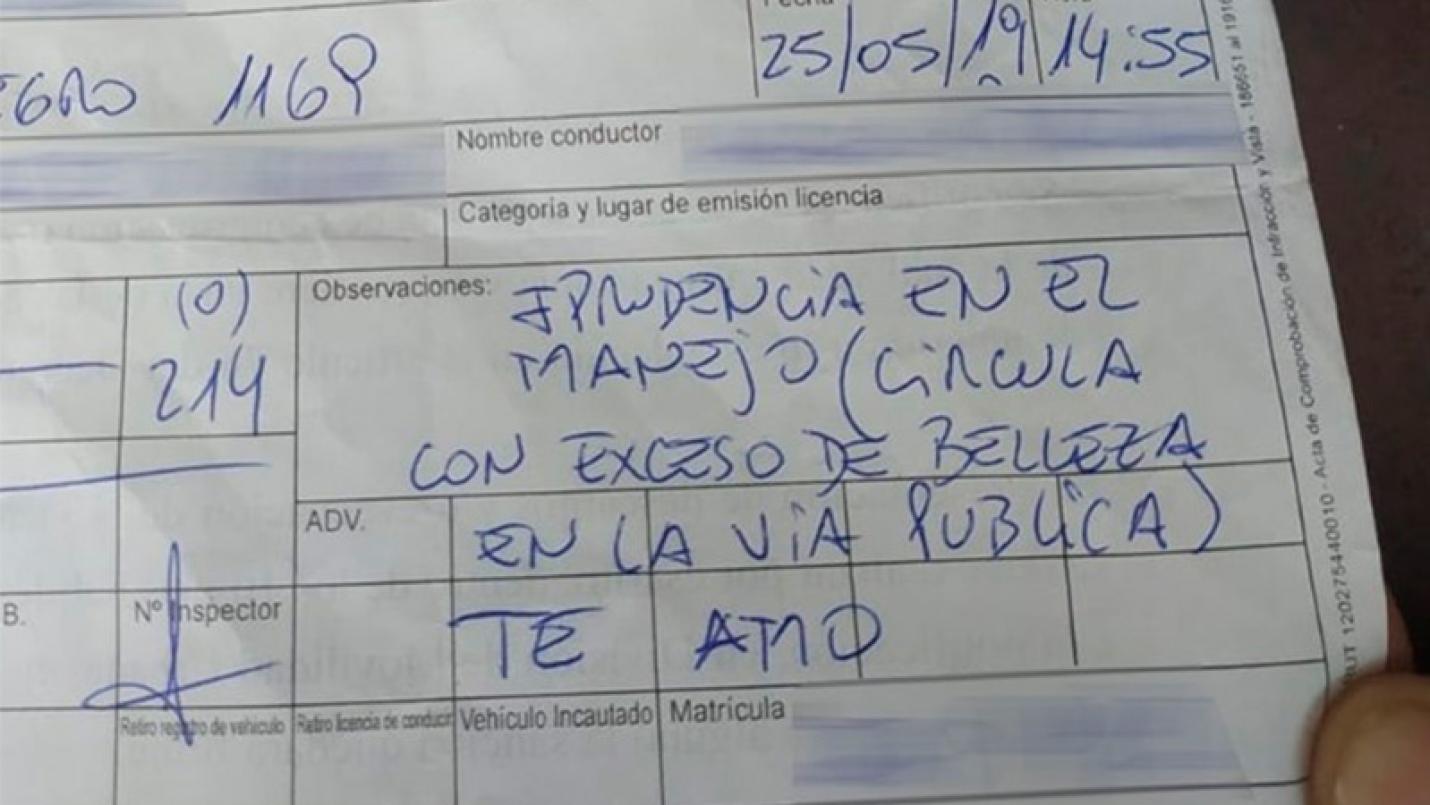 25/05/19 14:55
1169
Nombre conductor
Categoria y lugar de emisión licencia
(0)
214
Observaciones: IPRUDENCIA EN EL
MANEJO (CIRCULA
CON EXCESO DE BELLEZA
ADV. EN LA VIA PUBLICA)
TE AMO
B. Nº Inspector
Retiro registro de vehiculo Retiro licencia de conducir Vehículo Incautado Matricula
RUT 120275440010 - Acta de Comprobación de Infracción y Vista - 186651 al 191